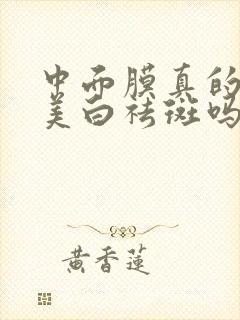 中面膜真的
美白祛斑吗
黄香莲